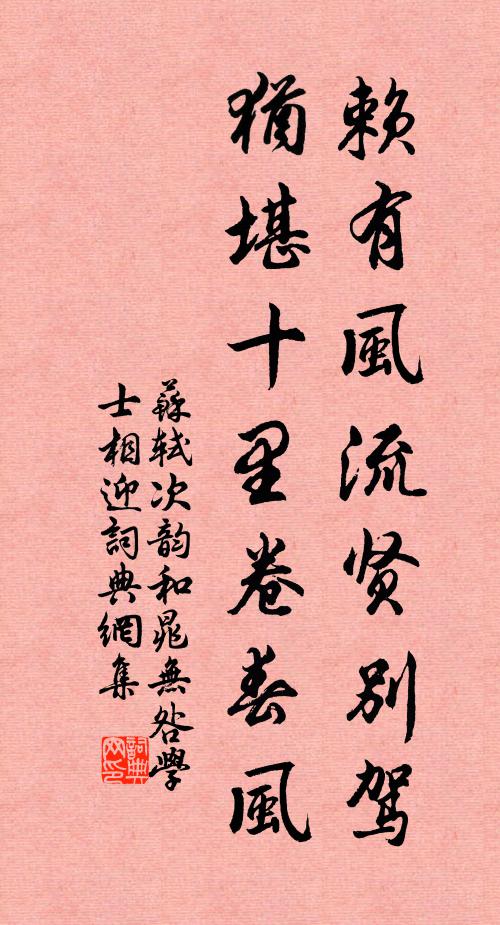 賴有風流贤別駕
猶堪十里卷春風
蘇軾次韵和晁無咎學
士相迎詞典網集
詞典
网印